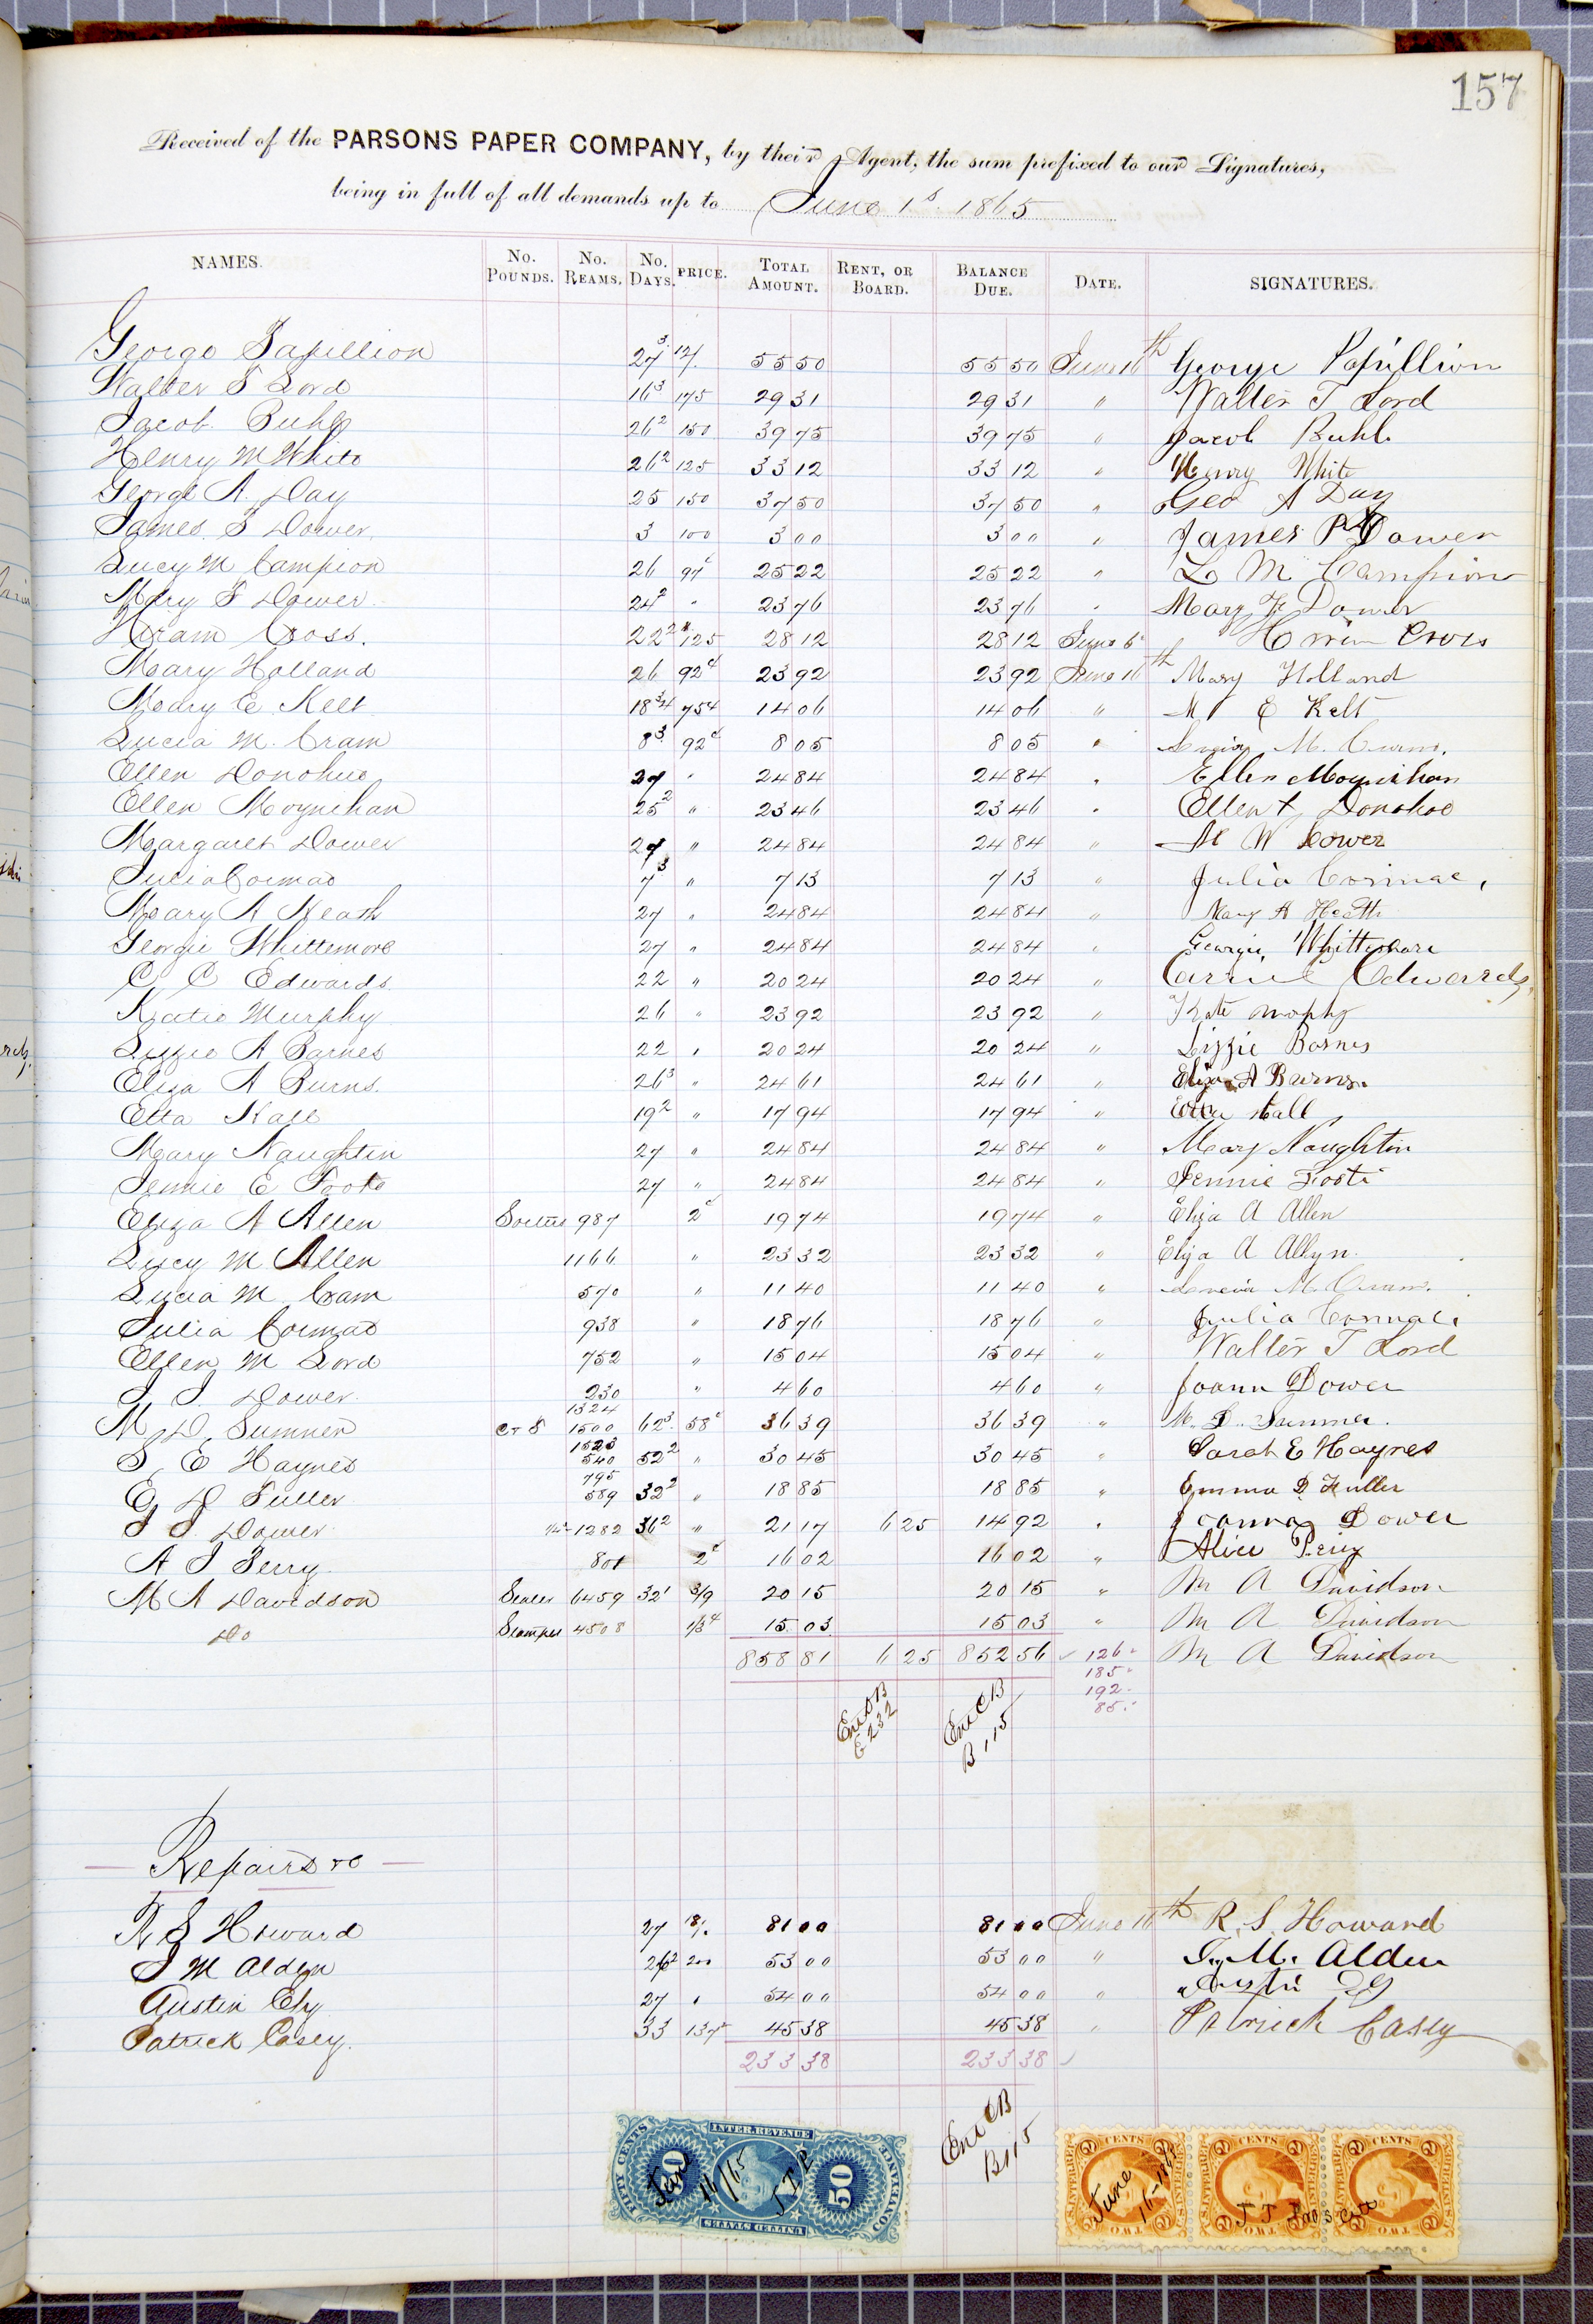 157
Received of the PARSONS PAPER COMPANY, by their Agent, the sum prefixed to our Signatures,
being in full of all demands up to June 1st 1865
NAMES. No. POUNDS. No. REAMS. No. DAYS. PRICE. TOTAL AMOUNT. RENT, OR BOARD. BALANCE DUE. DATE. SIGNATURES.
George Papillion 27 3 12/. 55 50 55 50 June 16th George Papillion
Walter T Lord 16 3 175 29 31 29 31 " Walter T Lord
Jacob Buhl 26 2 150 39 75 39 75 " Jacob Buhl
Henry M White 26 2 125 33 12 33 12 " Henry White
George A. Day 25 150 37 50 37 50 " Geo A Day
James P Dower 3 100 3 00 3 00 " James P Dower
Lucy M Campion 26 97c 25 22 25 22 " L M Campion
Mary F Dower 24 2 " 23 76 23 76 " Mary F Dower
Hiram Cross. 22 2 125 28 12 28 12 June 6 Hiram Cross
Mary Holland 26 92c 23 92 23 92 June 16th Mary Holland
Mary E Kelt 18 3/4 75c 14 06 14 06 " M E Kelt
Lucia M. Cram 8 3 92c 8 05 8 05 " Lucia M. Cram.
Ellen Donohue 27 " 24 84 24 84 " Ellen Moynihan
Ellen Moynihan 25 2 " 23 46 23 46 " Ellen t Donohoe
Margaret Dower 27 " 24 84 24 84 " M W Dower
Julia Cormac 7 3 " 7 13 7 13 " Julia Cormac,
Mary A Heath 27 " 24 84 24 84 " Mary A Heath
Georgie Whittemore 27 " 24 84 24 84 " Georgie Whittemore
C C Edwards 22 " 20 24 20 24 " Carrie Edwards,
Katie Murphy 26 " 23 92 23 92 " Kate Morphy
Lizzie A Barnes 22 " 20 24 20 24 " Lizzie Barnes
Eliza A Burns. 26 3 " 24 61 24 61 " Eliza A Burns.
Etta Hall 19 2 " 17 94 17 94 " Etta Hall
Mary Naughtin 27 " 24 84 24 84 " Mary Naughtin
Jennie E Foote 27 " 24 84 24 84 " Jennie Foote
Eliza A Allen 987 2c 19 74 19 74 " Eliza A Allen
Lucy M Allen 1166 " 23 32 23 32 " Eliza A Allyn.
Lucia M Cram 570 " 11 40 11 40 " Lucia M. Cram.
Julia Cormac 938 " 18 76 18 76 " Julia Cormac.
Ellen M Lord 752 " 15 04 15 04 " Walter T Lord
J. J. Dower 230 " 4 60 4 60 " Joann Dower
M D Sumner C&S 1324 1500 62 3 58c 36 39 36 39 " M. D. Sumner.
S E Haynes 1523 540 52 2 " 30 45 30 45 " Sarah E Haynes
E D Fuller 795 589 32 2 " 18 85 18 85 " Emma D Fuller
J J Dower 1282 36 2 " 21 17 6 25 14 92 " Joanna Dower
A J Perry 801 2c 16 02 16 02 " Alice Perry
M A Davidson Sealer 6459 32 1 3/9 20 15 20 15 " M A Davidson
Do Stamper 4508 1/3c 15 03 15 03 " M A Davidson
858 81 6 25 852 56 ✓ 126 M A Davidson
185
192
85
Ent CB B 115
Repairs &c
R S Howard 27 18/. 81 00 81 00 June 16th R. S. Howard
J M Alden 26 2 200 53 00 53 00 " J. M. Alden
Austin Ely 27 " 54 00 54 00 " Austin Ely
Patrick Casey. 33 137 45 38 45 38 " Patrick Casey
233 38 233 38 ✓
Ent CB B115
INTER. REVENUE FIFTY CENTS 50 50 CONVEYANCE UNITED STATES
June 16/65 J T P
U.S. INTER. REV. 2 CENTS TWO
U.S. INTER. REV. 2 CENTS TWO
U.S. INTER. REV. 2 CENTS TWO
June 16-1865